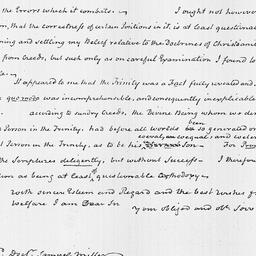 the Errors which it combats. — I ought not however
on, that the correctness of certain Positions in it, is at least questionab
ning and settling my Belief relative to the Doctrines of Christianit
from Creeds, but such only as on careful Examination I found to
It appeared to me that the Trinity was a Fact fully revealed and
quo modo was incomprehensible, and consequently inexplicable
according to sundry Creeds, the Divine Being whom we den
Person in the Trinity, had before all Worlds been so generated or
coequal, and
Person in the Trinity, as to be his Eternal Son — For
the Scriptures diligently, but without Success — I therefo
on as being at least of questionable Orthodoxy —
with sincere Esteem and Regard and the best wishes f
welfare. I am Dear Sir
Your obliged and obt. Serv
Doctr. Samuel Miller